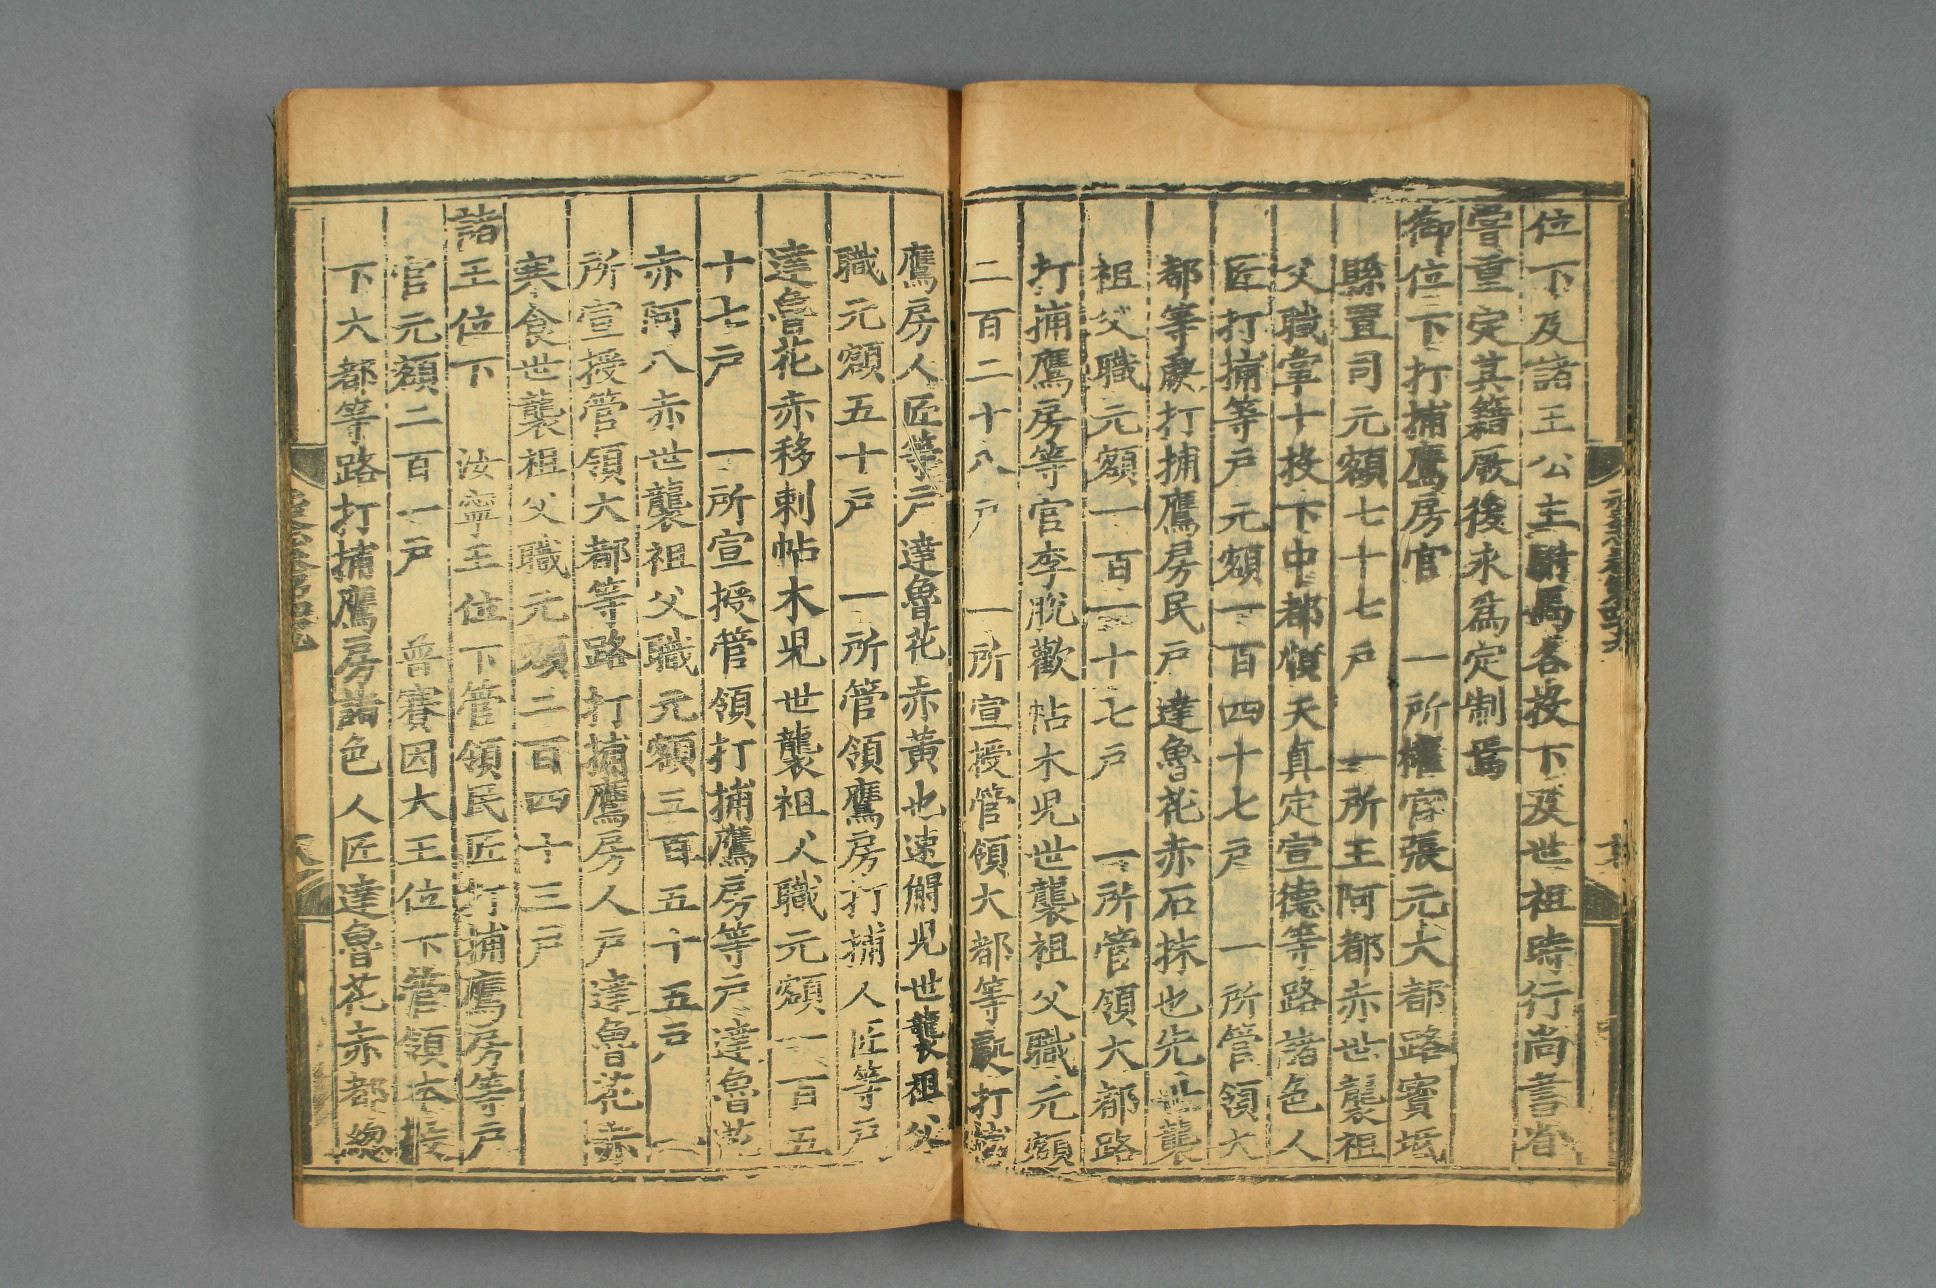 位下及諸王公主駙馬各投下及世祖時行尚書省
嘗重定其籍厥後永為定制焉
御位下打捕鷹房官 一所權官張元大都路寶坻
縣置司元額七十七戶 一所王阿都赤世襲祖
父職掌十投下中都順天真定宣德等路諸色人
匠打捕等戶元額一百四十七戶 一所管領大
都等處打捕鷹房民戶達魯花赤石抹也先世襲
祖父職元額一百一十七戶 一所管領大都路
打捕鷹房等官李脫歡帖木兒世襲祖父職元額
二百二十八戶 一所宣授管領大都等處打捕
鷹房人匠等戶達魯花赤黃也速䚟兒世襲祖父
職元額五十戶 一所管領鷹房打捕人匠等戶
達魯花赤移剌帖木兒世襲祖父職元額一百五
十七戶 一所宣授管領打捕鷹房等戶達魯花
赤阿八赤世襲祖父職元額三百五十五戶 一
所宣授管領大都等路打捕鷹房人戶達魯花赤
寒食世襲祖父職元額二百四十三戶
諸王位下 汝寧王位下管領民匠打捕鷹房等戶
官元額二百一戶 普賽因大王位下管領本投
下大都等路打捕鷹房諸色人匠達魯花赤都總